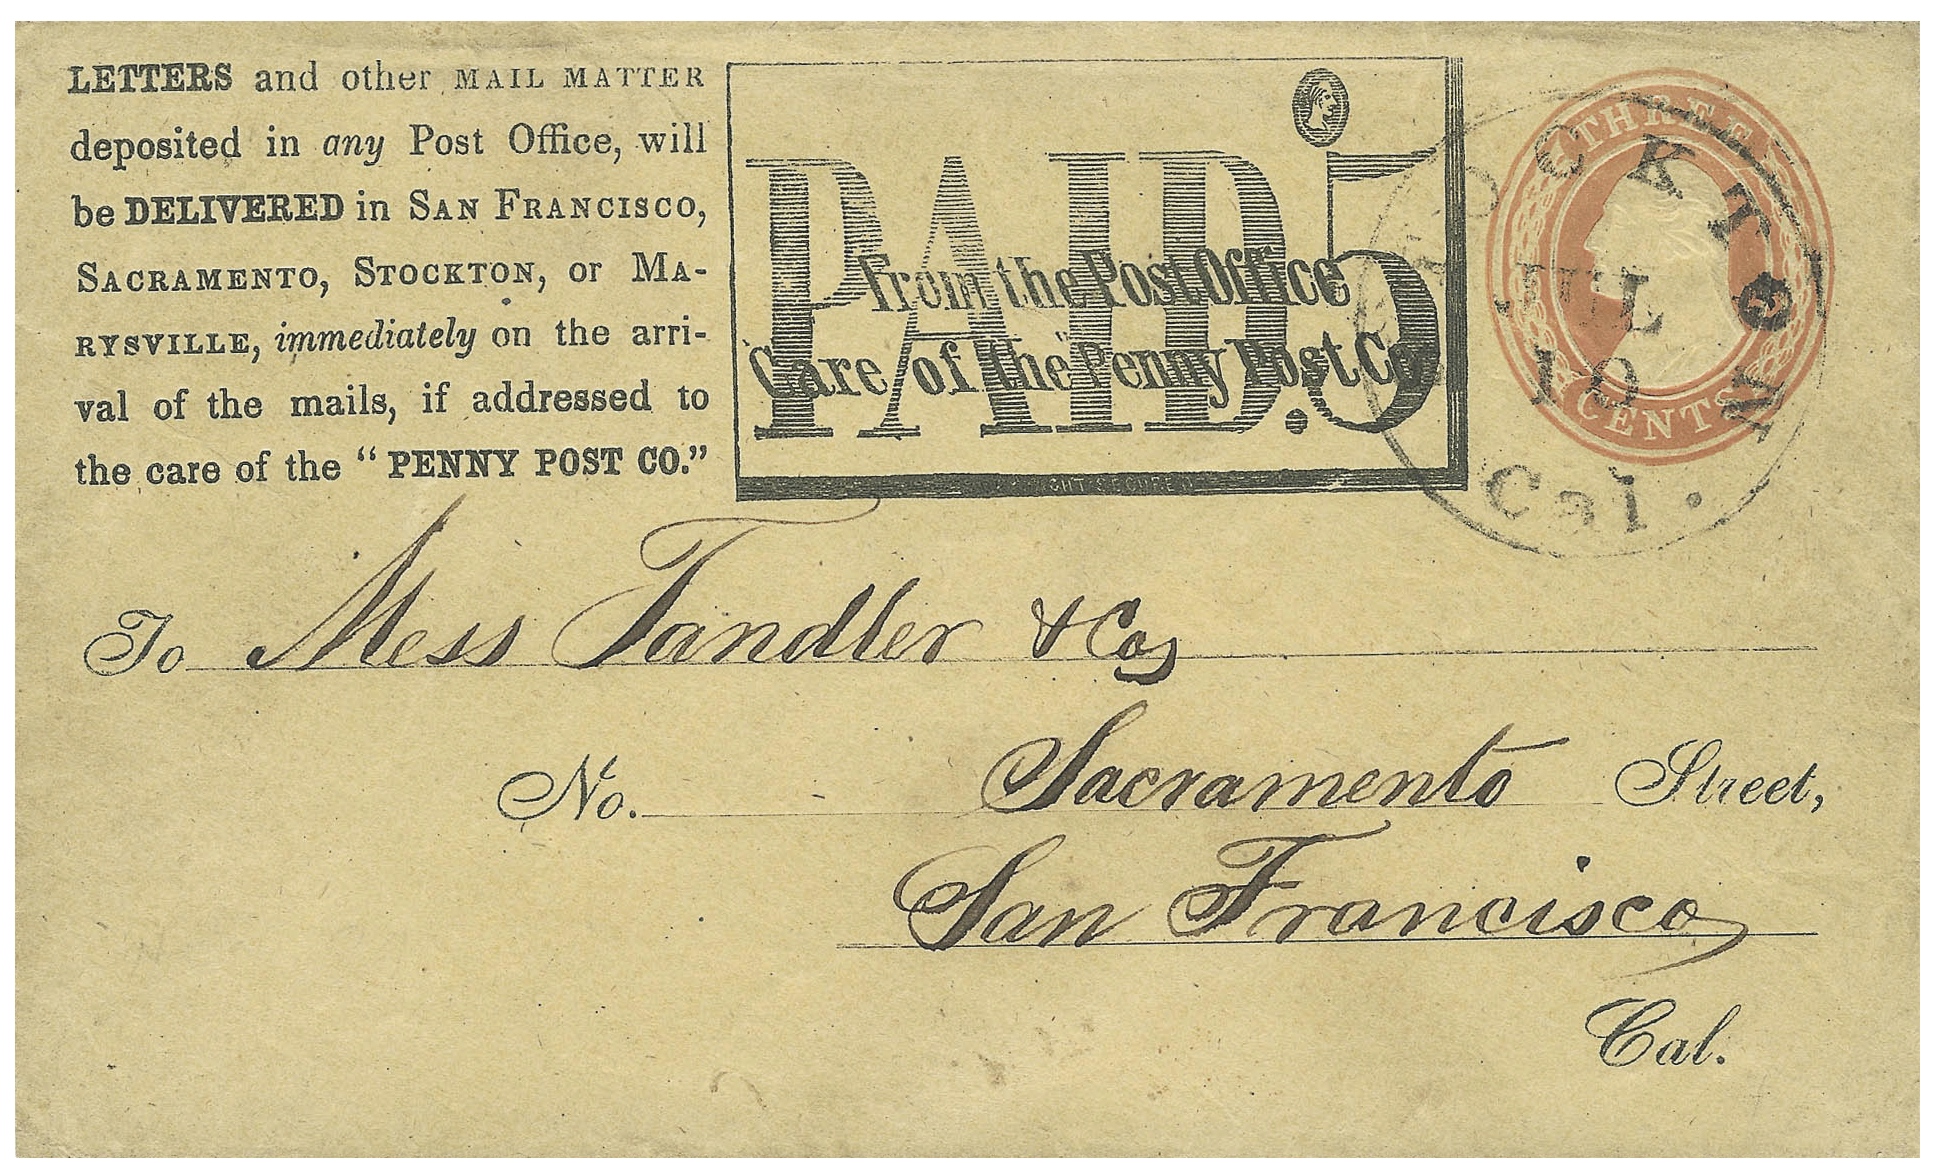 LETTERS and other MAIL MATTER
deposited in any Post Office, will
be DELIVERED in SAN FRANCISCO,
SACRAMENTO, STOCKTON, or MA-
RYSVILLE, immediately on the arri-
val of the mails, if addressed to
the care of the “PENNY POST CO.”
PAID.5
From the Post Office
Care of the "Penny Post Co"
GHT SECURED
THREE
CENTS
STOCKTON
JUL
10
Cal.
To Mess Tandler & Co
No. Sacramento Street,
San Francisco
Cal.